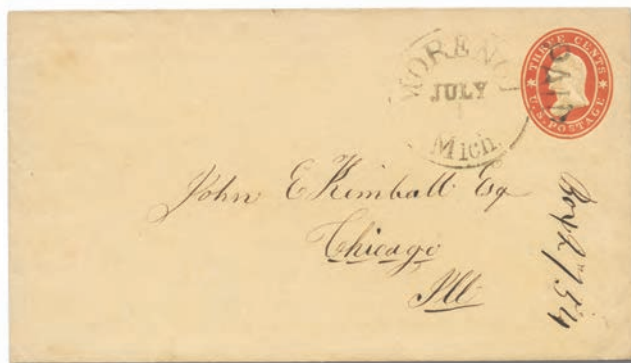 MORENCI
JULY
1
Mich.
PAID
THREE CENTS
U.S. POSTAGE
John E Kimball Esq
Chicago
Ill
Box 2754